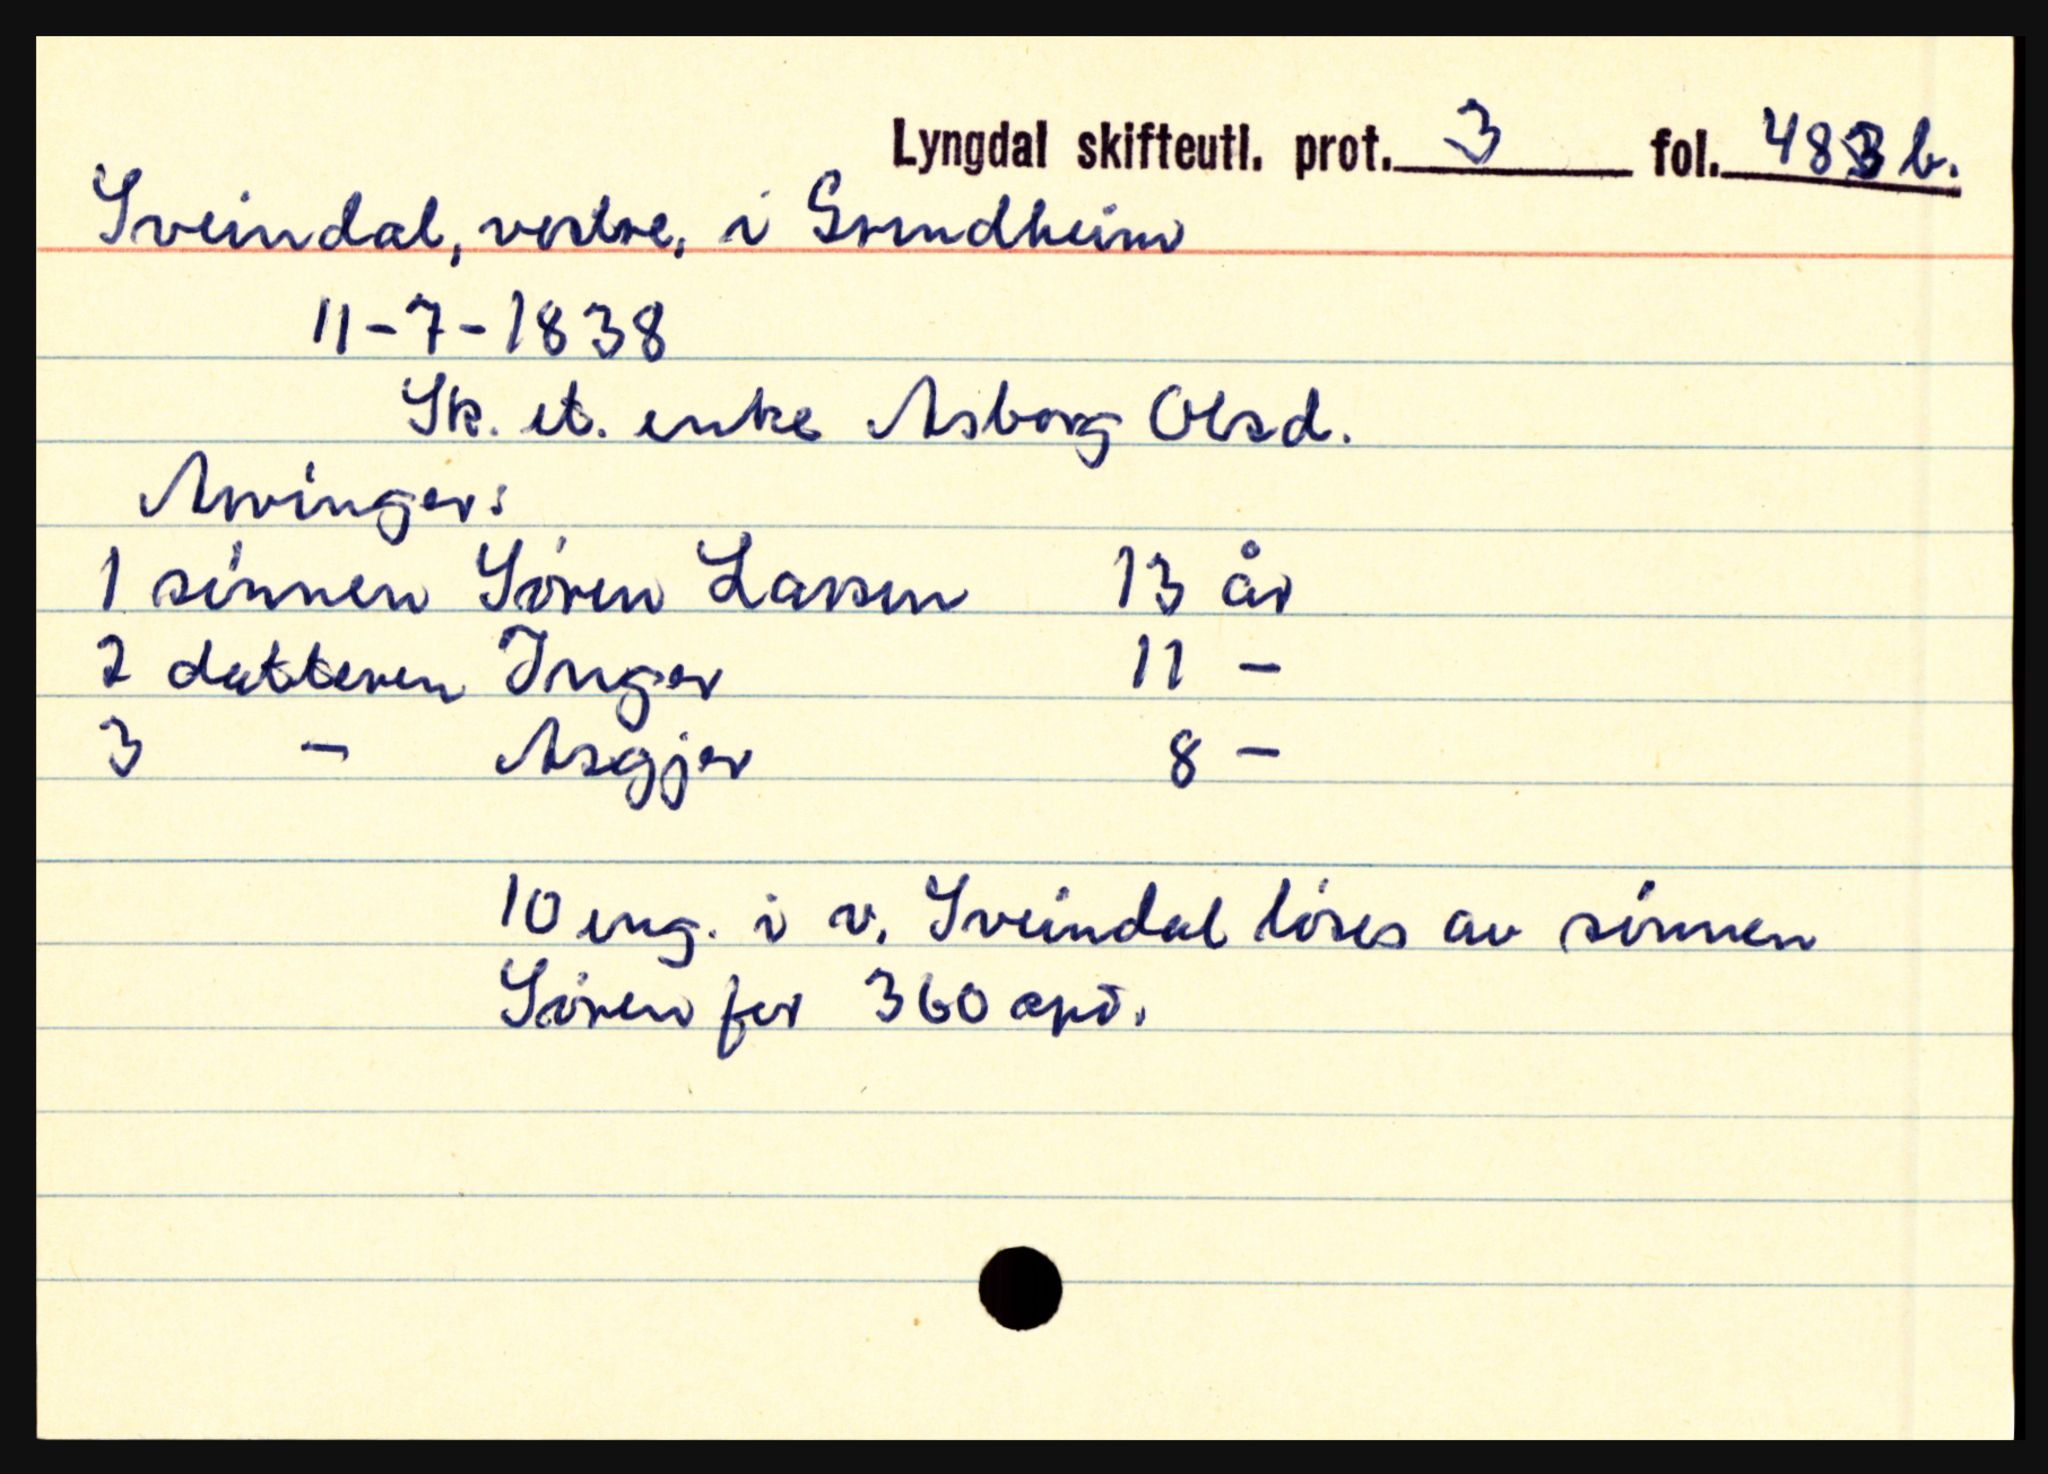 Lyngdal skifteutl. prot. 3 fol. 483 b.
Sveindal, vestre, i Grindheim
11-7-1838
Sk. et. enke Asborg Olsd.
Arvinger:
1 sönnen Sören Larsen 13 år
2 datteren Inger 11 -
3 - Asgjer 8 -
10 eng. i v. Sveindal löses av sönnen
Sören for 360 spd.